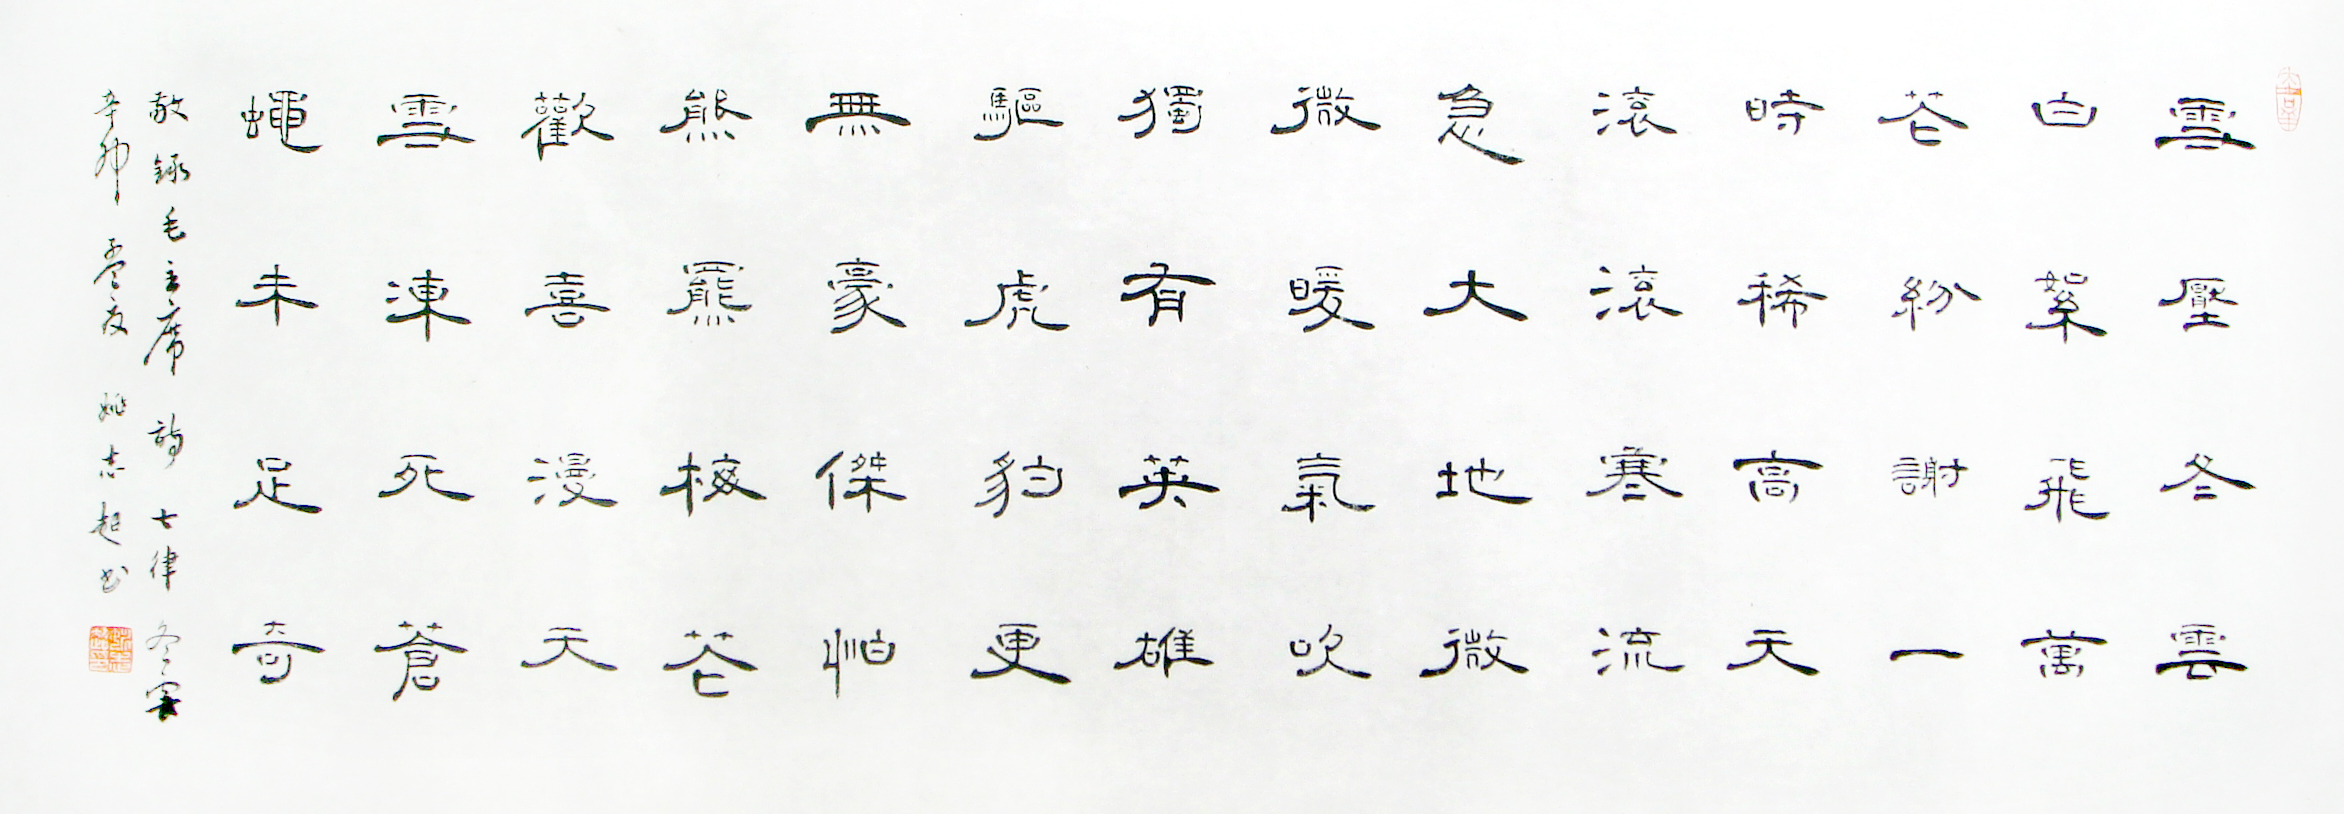 雪壓冬雲
白絮飛萬
花紛謝一
時稀高天
滾滾寒流
急大地微
微暖氣吹
獨有英雄
驅虎豹更
無豪傑怕
熊羆梅花
歡喜漫天
雪凍死蒼
蠅未足奇
敬錄毛主席詩七律冬雲
辛卯孟夏姚志起书